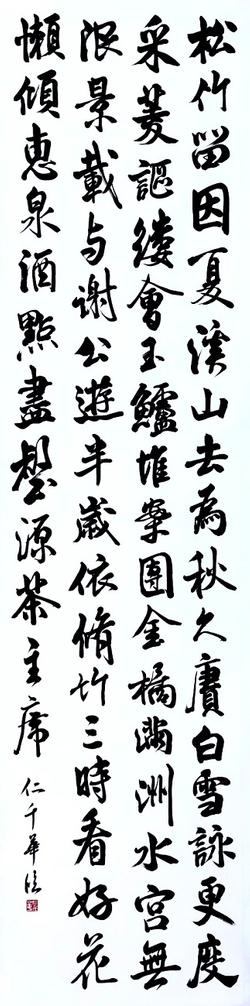 松竹留因夏溪山去為秋久賡白雪詠更度
采菱謳縷會玉鱸堆案團金橘滿洲水宮無
限景載与謝公遊半歲依脩竹三時看好花
懶傾惠泉酒點盡壑源茶主席
仁千華臨